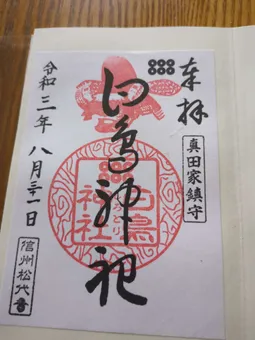 奉拝
真田家鎮守
白鳥神社
白鳥
神社
令和三年八月
日
信州松代